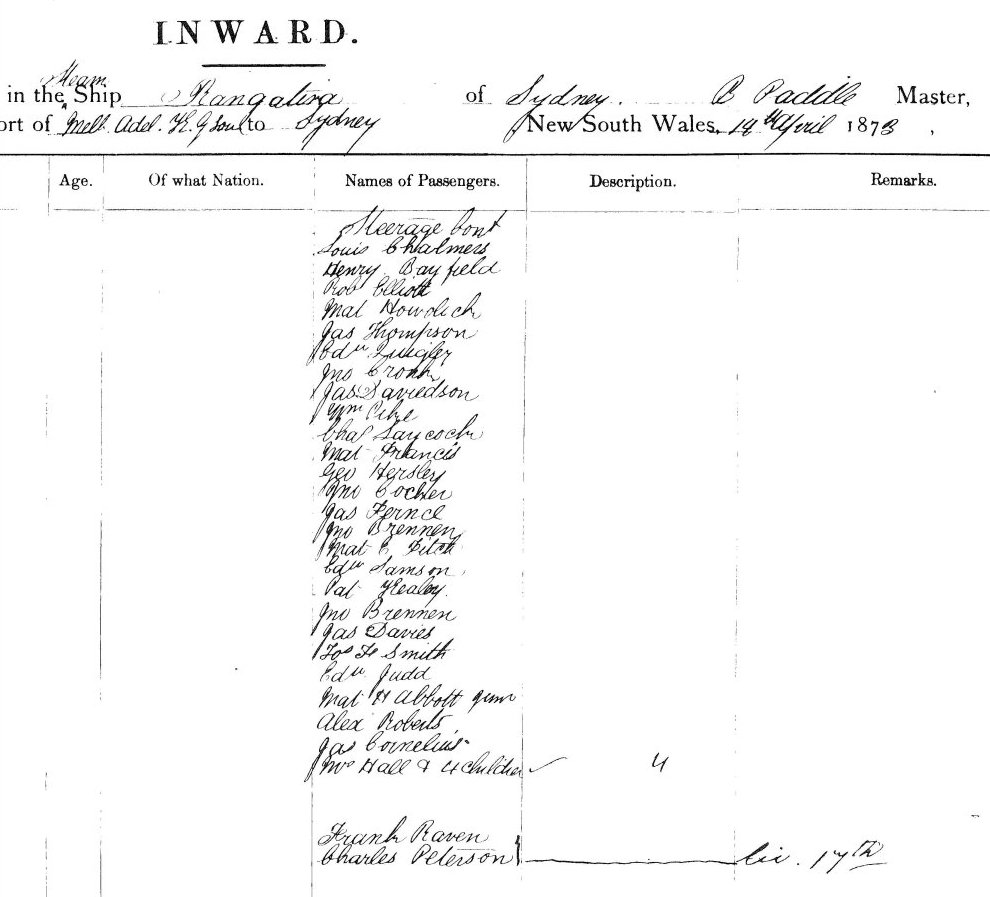 INWARD.
Steam
in the Ship Rangatira of Sydney. Paddle Master,
ort of Melb Adel. K. G Sou to Sydney New South Wales, 14th April 1873,
Age. Of what Nation. Names of Passengers. Description. Remarks.
Steerage Cont
Louis Chalmers
Henry Bayfield
Rob Elliott
Mat
Jas Thompson
Edw Quigley
Jno Cronin
Jas Daviedson
Wm Pike
Chas Laycock
Mat Francis
Geo Hersley
Jno Cocher
Jas
Jno Brennen
Mat C Fitch
Edw Samson
Pat Healey.
Jno Brennen
Jas Davies
Jos Smith
Edw Judd
Mat H Abbott
Alex Roberts
Jas Cornelius
Mrs Hall & 4 Children 4
Frank Raven
Charles Peterson 17th